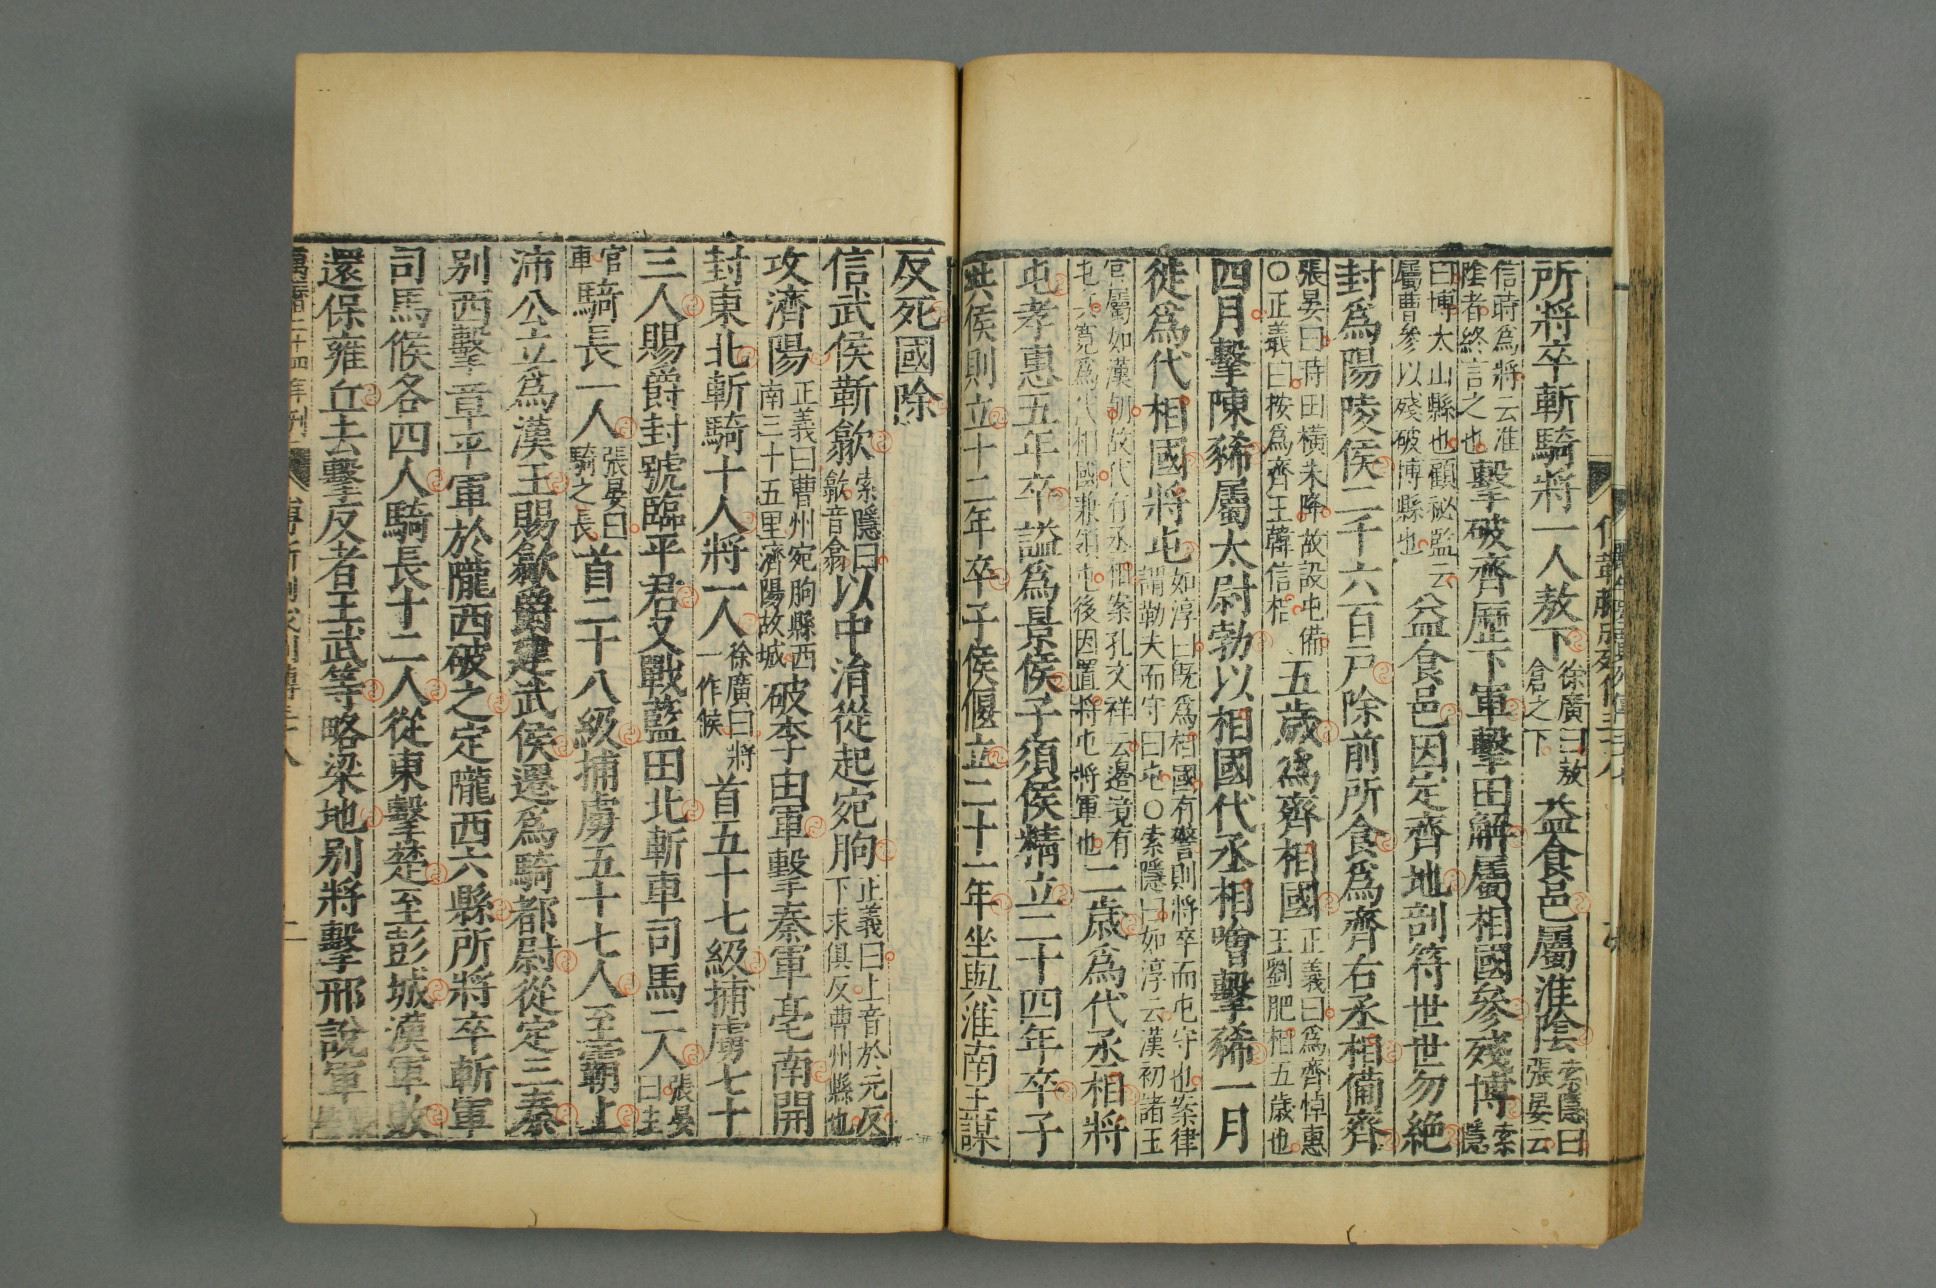 所將卒斬騎將一人敖下徐廣曰敖倉之下益食邑屬淮陰索隱曰張晏云
信時爲將云淮陰者終言之也擊破齊歷下軍擊田解屬相國參殘博索隱
曰博太山縣也顧祕監云屬曹參以殘破博縣也益食邑因定齊地剖符世世勿絶
封爲陽陵侯二千六百戸除前所食爲齊右丞相備齊
張晏曰時田橫未降故設屯備○正義曰按爲齊王韓信相五歲爲齊相國正義曰爲齊悼惠王劉肥相五歲也
四月擊陳豨屬太尉勃以相國代丞相噲擊豨一月
徙爲代相國將屯如淳曰旣爲相國有警則將卒而屯守也案律謂勒夫而守曰屯○索隱曰如淳云漢初諸王
官屬如漢朝故代有丞相案孔文祥云邊境有屯兵寬爲代相國兼領屯後因置將屯將軍也二歲爲代丞相將
屯孝惠五年卒謚爲景侯子須侯精立二十四年卒子
共侯則立十二年卒子侯偃立三十一年坐與淮南王謀
反死國除
信武侯靳歙索隱曰歙音翕以中涓從起宛朐正義曰上音於元反下求俱反曹州縣也
攻濟陽正義曰曹州宛朐縣西南三十五里濟陽故城破李由軍擊秦軍亳南開
封東北斬騎十人將一人徐廣曰將一作候首五十七級捕虜七十
三人賜爵封號臨平君又戰藍田北斬車司馬二人張晏曰主
官車騎長一人張晏曰騎之長首二十八級捕虜五十七人至霸上
沛公立爲漢王賜歙爵建武侯還爲騎都尉從定三秦
别西擊章平軍於隴西破之定隴西六縣所將卒斬車
司馬候各四人騎長十二人從東擊楚至彭城漢軍敗
還保雍丘去擊反者王武等略梁地别將擊邢說軍